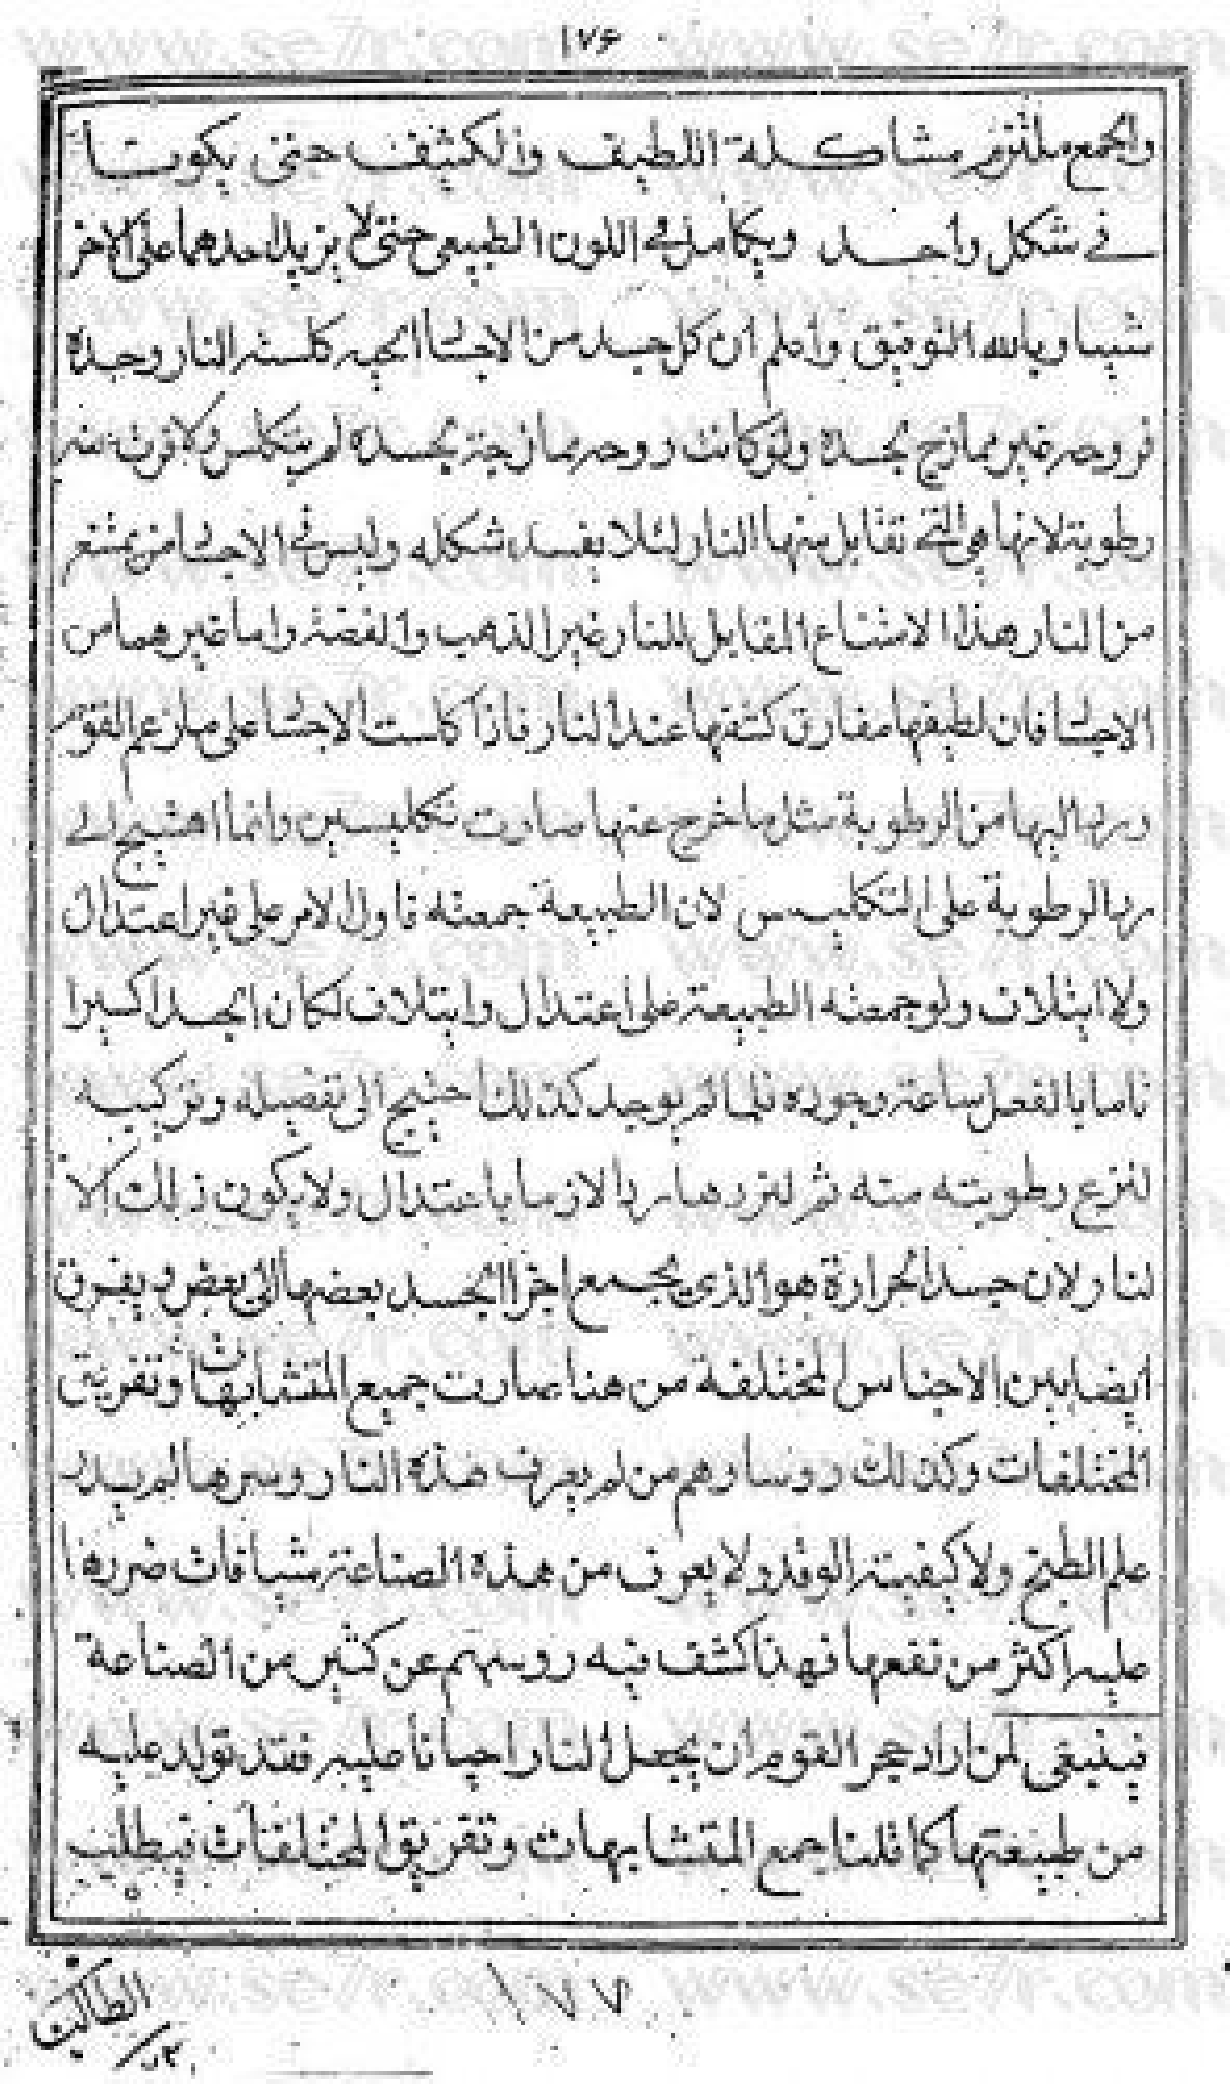 ١٧۶
والجمع ملتزم مشاكلة اللطيف والكثيف حتى يكونا
في شكل واحد ويكا في اللون الطبيعي حتى لا يزيل احدهما على الاخر
شيا وبالله التوفيق واعلم ان كل جسد من الاجسا كلسته النار وحده
فروحه غير ممازج بجسده ولو كانت روحه ممازجة بجسده لم يتكلس ولا منه
رطوبة لانها هي التي تقابل النار لئلا يفسد شكله وليس في الاجسا من يمتنع
من النار هذا الامتناع المقابل للنار غير الذهب والفضة واما غيرهما من
الاجسا فان لطيفها مفارق كثفها عند النار فاذا كلست الاجسا على ما زعم القوم
ورد اليها من الرطوبة مثل ما خرج عنها صارت تكليسين وانما احتيج الى
رد الرطوبة على التكليس لان الطبيعة جمعته فاول الامر على غير اعتدال
ولا ايتلاف ولو جمعته الطبيعة على اعتدال وايتلاف لكان الجسد اكسيرا
تاما بالفعل ساعة وجوده فلما لم يوجد كذلك احتيج الى تفصيله وتركيبه
لنزع رطوبته منه ثم لنردها ردا لازما باعتدال ولا يكون ذلك الا
لنار لان جسد الحرارة هو الذي يجمع اجزا الجسد بعضها الى بعض ويفرق
ايضا بين الاجناس المختلفة من هنا صارت جميع المتشابهات وتفريق
المختلفات وكذلك روسا وهم من لم يعرف هذه النار وسرها لم يدر
علم الطبخ ولا كيفية الوقد ولا يعرف من هذه الصناعة شيا فات ضررها
عليه اكثر من نفعها فهذا كشف فيه روسهم عن كثير من الصناعة
فينبغي لمن اراد حجر القوم ان يجعل النار احيانا عليه فقد تولد عليه
من طبيعتها كما قلنا جمع المتشابهات وتفريق المختلفات فيطلب
الطالب
١٧٧